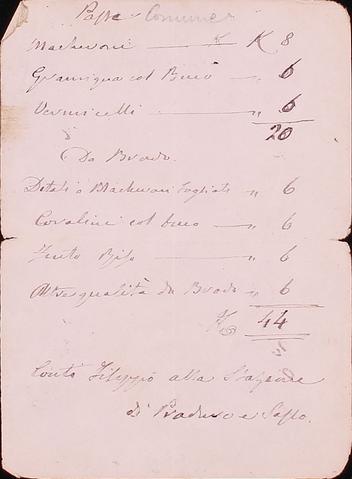 Paste Comuni
Maccheroni K 8
Gramigna col Buco " 6
Vermicelli " 6
20
Da Brodo.
Ditali o Maccheroni Tagliati " 6
Coralini col buco " 6
Riso " 6
Altre qualità da Brodo " 6
K 44
Conte Filippo alla Stazione
di